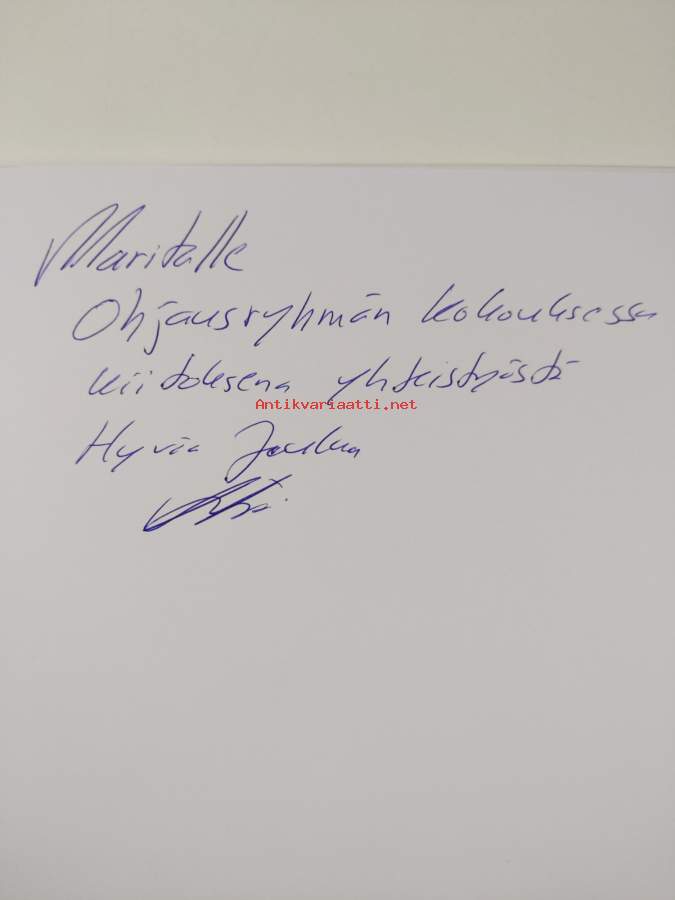 Maritalle
Ohjausryhmän kokouksessa
kiitoksena yhteistyöstä
Antikvariaatti.net
Hyvää Joulua